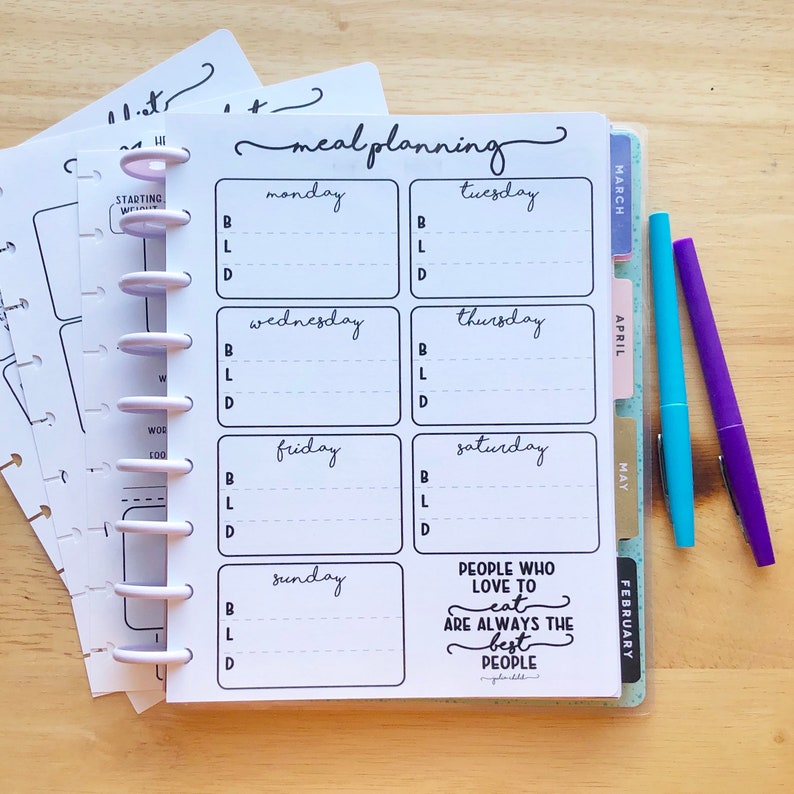 meal planning
monday
B
L
D
tuesday
B
L
D
wednesday
B
L
D
thursday
B
L
D
friday
B
L
D
saturday
B
L
D
sunday
B
L
D
PEOPLE WHO
LOVE TO
eat
ARE ALWAYS THE
best
PEOPLE
julia child
MARCH
APRIL
MAY
FEBRUARY
STARTING
WEIGHT
HE
WOR
FOO